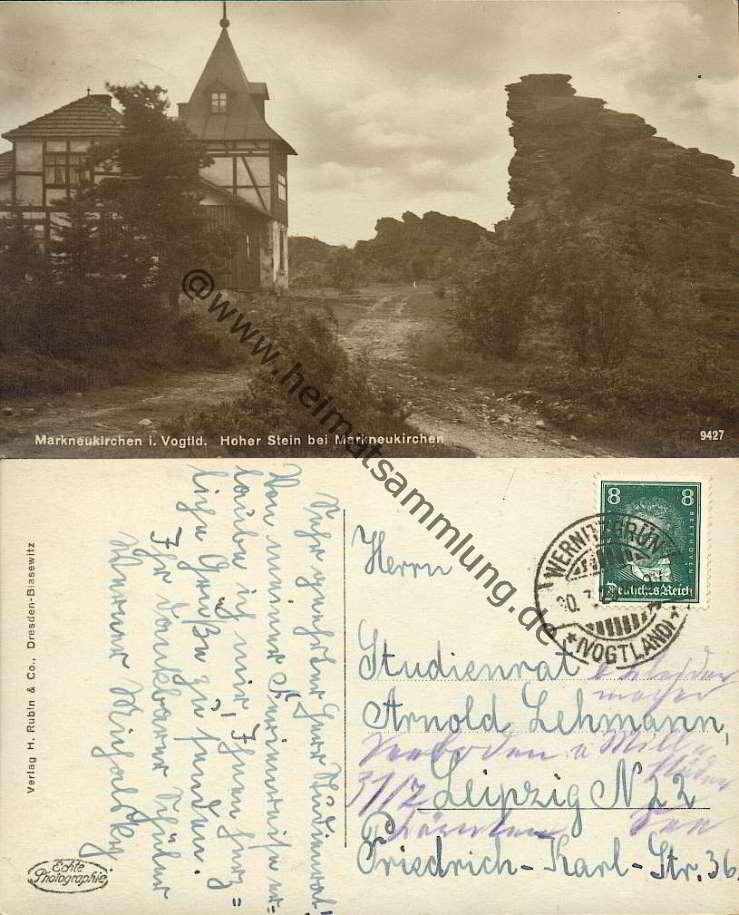 Markneukirchen i. Vogtld. Hoher Stein bei Markneukirchen
9427
@www.heimatsammlung.de
Verlag H. Rubin & Co., Dresden-Blasewitz
Echte
Photographie
Sehr geehrter Herr Studienrat!
Von meiner Ferienreise er=
laube ich mir, Ihnen herz=
liche Grüße zu senden.
Ihr dankbarer Schüler
Werner Michalsky
8 8
BEETHOVEN
Deutsches Reich
WERNITZGRÜN
(VOGTLAND)
Herrn
Studienrat
Arnold Lehmann,
Seeboden a Mill
31/7 Leipzig N 22
Kärnten See
Friedrich-Karl-Str. 36.